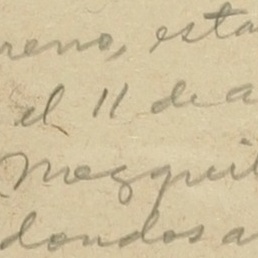 reno, esta
el 11 de a
Mezquit
dondos a